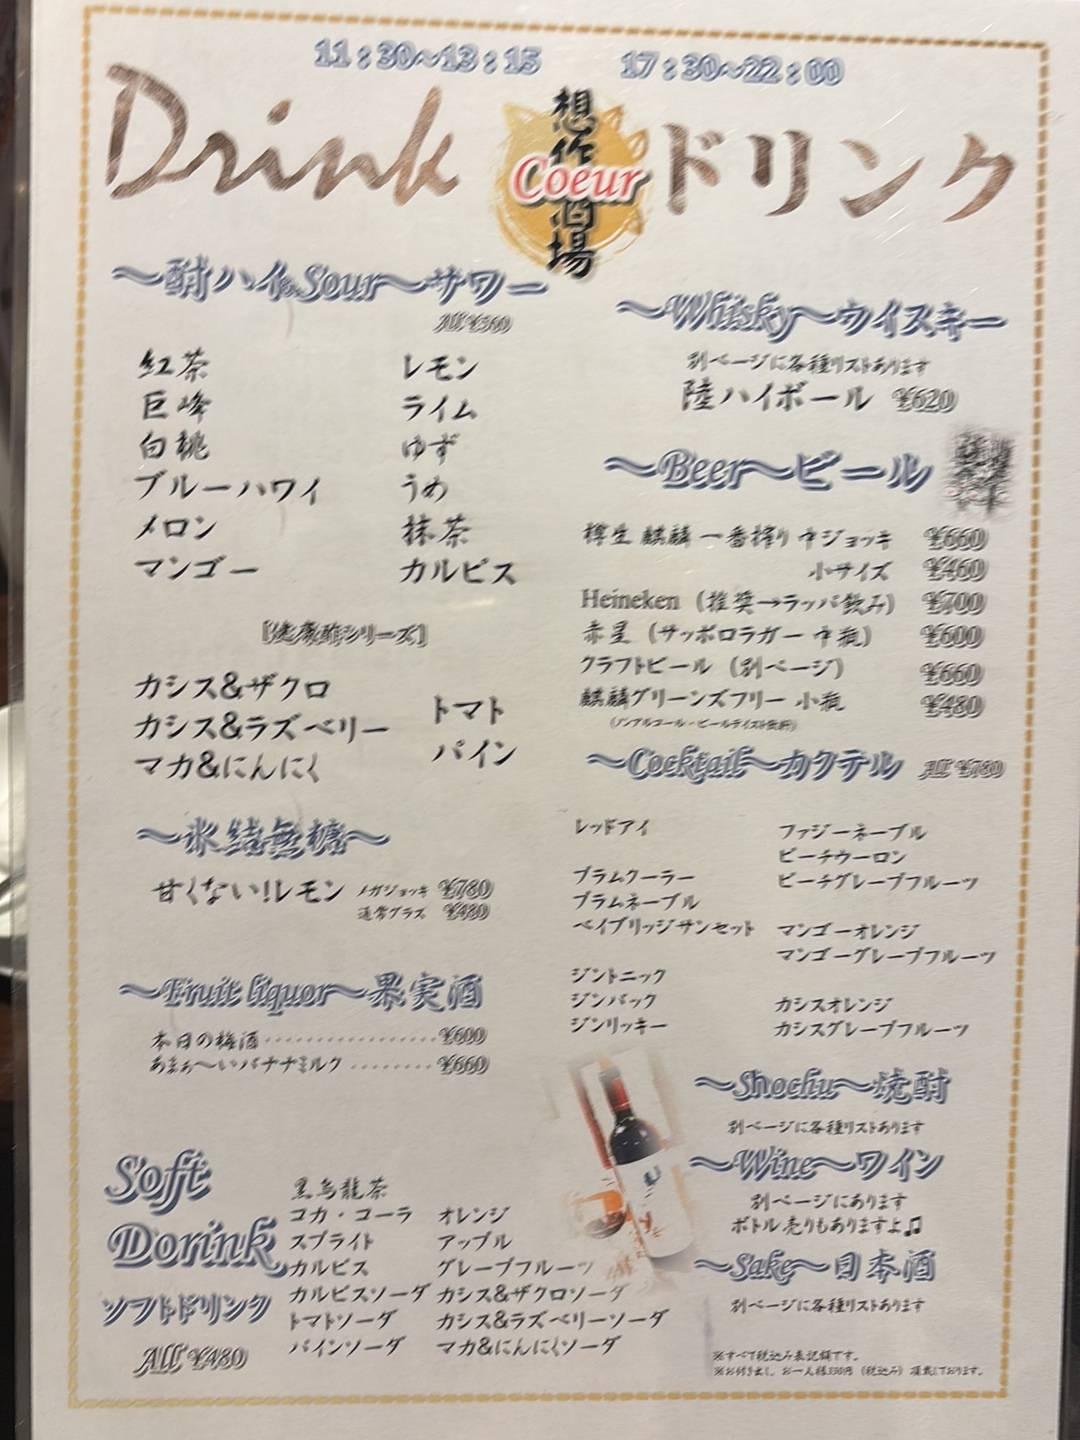 11：30～13：15　17：30～22：00
Drink
想作酒場
Coeur
ドリンク
～酎ハイ&Sour～サワー
All ¥560
紅茶
巨峰
白桃
ブルーハワイ
メロン
マンゴー
レモン
ライム
ゆず
うめ
抹茶
カルピス
[健康酢シリーズ]
カシス&ザクロ
カシス&ラズベリー
マカ&にんにく
トマト
パイン
～氷結無糖～
甘くない!レモン メガジョッキ ¥780
通常グラス ¥480
～Fruit liquor～果実酒
本日の梅酒 ¥600
あまぁ～いバナナミルク ¥660
Soft
Dorink
ソフトドリンク
All ¥480
黒烏龍茶
コカ・コーラ
スプライト
カルピス
カルピスソーダ
トマトソーダ
パインソーダ
オレンジ
アップル
グレープフルーツ
カシス&ザクロソーダ
カシス&ラズベリーソーダ
マカ&にんにくソーダ
～Whisky～ウイスキー
別ページに各種リストあります
陸ハイボール ¥620
～Beer～ビール
樽生 麒麟 一番搾り 中ジョッキ ¥660
小サイズ ¥460
Heineken（推奨→ラッパ飲み） ¥700
赤星（サッポロラガー 中瓶） ¥600
クラフトビール（別ページ） ¥660
麒麟グリーンズフリー 小瓶 ¥480
（ノンアルコール・ビールテイスト飲料）
～Cocktail～カクテル All ¥780
レッドアイ
プラムクーラー
プラムネーブル
ベイブリッジサンセット
ジントニック
ジンバック
ジンリッキー
ファジーネーブル
ピーチウーロン
ピーチグレープフルーツ
マンゴーオレンジ
マンゴーグレープフルーツ
カシスオレンジ
カシスグレープフルーツ
～Shochu～焼酎
別ページに各種リストあります
～Wine～ワイン
別ページにあります
ボトル売りもありますよ♫
～Sake～日本酒
別ページに各種リストあります
※すべて税込み表記額です。
※お付き出し、お一人様330円（税込み）頂戴しております。